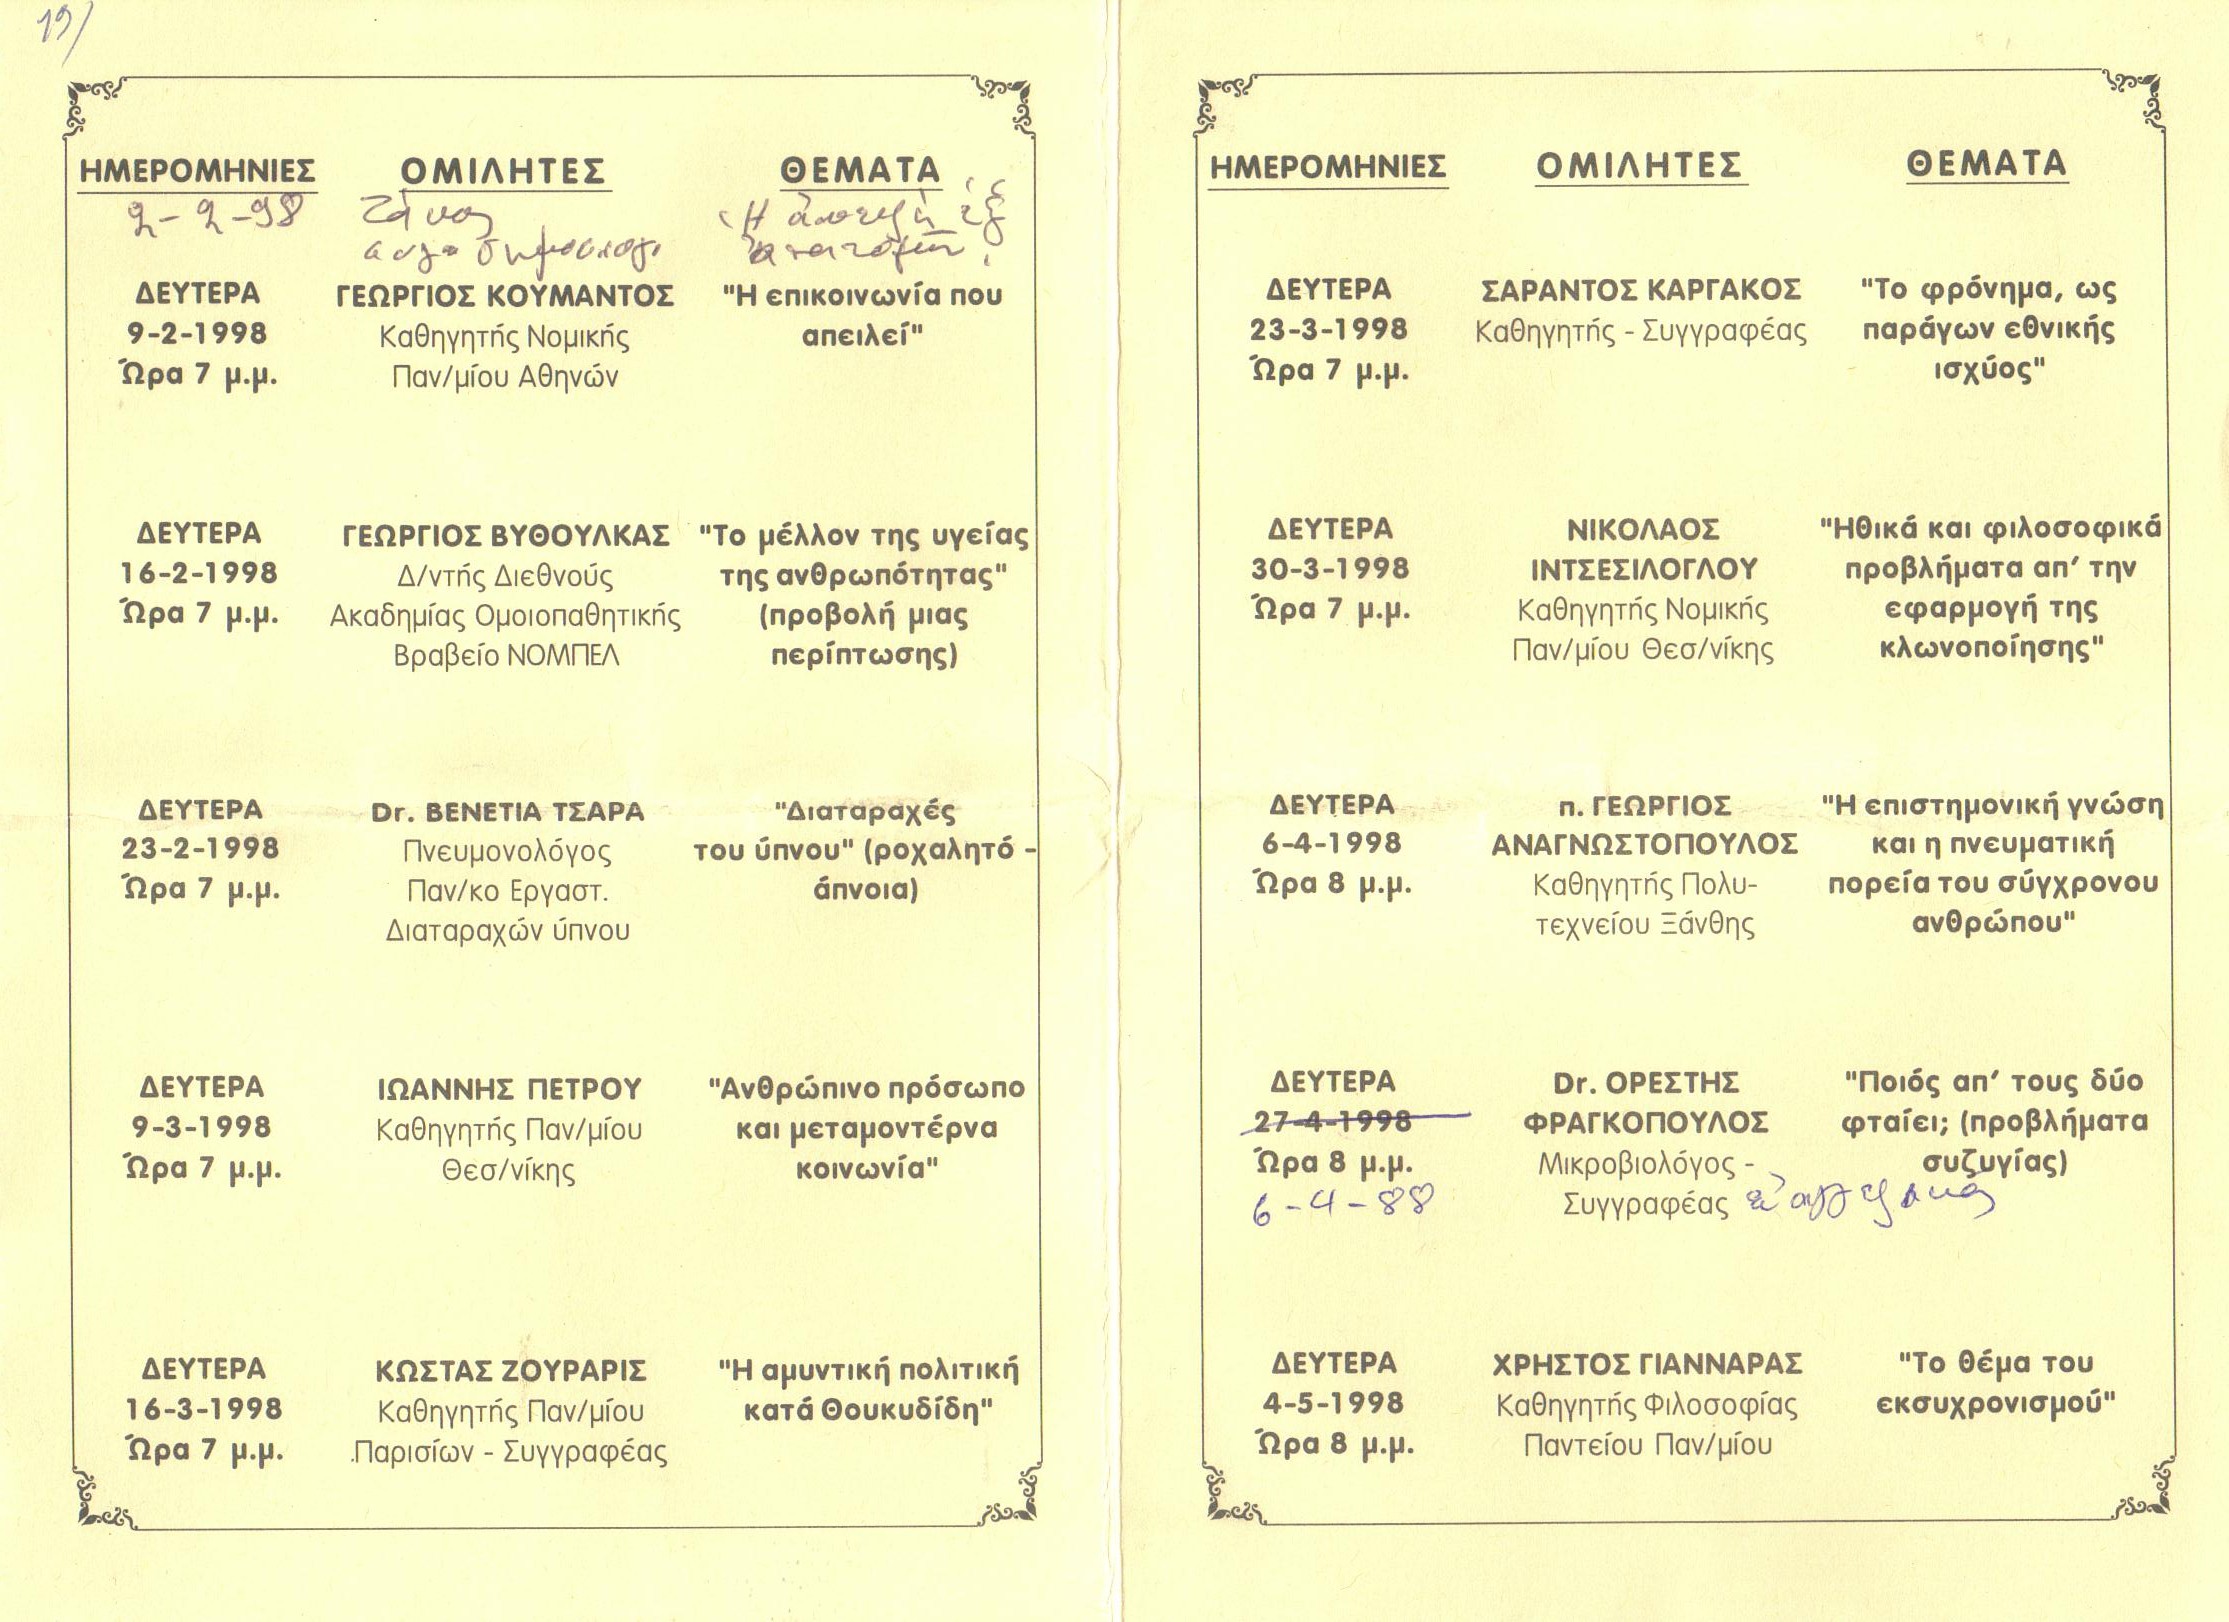 19/
ΗΜΕΡΟΜΗΝΙΕΣ ΟΜΙΛΗΤΕΣ ΘΕΜΑΤΑ
2-2-98
ΔΕΥΤΕΡΑ ΓΕΩΡΓΙΟΣ ΚΟΥΜΑΝΤΟΣ "Η επικοινωνία που
9-2-1998 Καθηγητής Νομικής απειλεί"
Ώρα 7 μ.μ. Παν/μίου Αθηνών
ΔΕΥΤΕΡΑ ΓΕΩΡΓΙΟΣ ΒΥΘΟΥΛΚΑΣ "Το μέλλον της υγείας
16-2-1998 Δ/ντής Διεθνούς της ανθρωπότητας"
Ώρα 7 μ.μ. Ακαδημίας Ομοιοπαθητικής (προβολή μιας
Βραβείο ΝΟΜΠΕΛ περίπτωσης)
ΔΕΥΤΕΡΑ Dr. ΒΕΝΕΤΙΑ ΤΣΑΡΑ "Διαταραχές
23-2-1998 Πνευμονολόγος του ύπνου" (ροχαλητό -
Ώρα 7 μ.μ. Παν/κο Εργαστ. άπνοια)
Διαταραχών ύπνου
ΔΕΥΤΕΡΑ ΙΩΑΝΝΗΣ ΠΕΤΡΟΥ "Ανθρώπινο πρόσωπο
9-3-1998 Καθηγητής Παν/μίου και μεταμοντέρνα
Ώρα 7 μ.μ. Θεσ/νίκης κοινωνία"
ΔΕΥΤΕΡΑ ΚΩΣΤΑΣ ΖΟΥΡΑΡΙΣ "Η αμυντική πολιτική
16-3-1998 Καθηγητής Παν/μίου κατά Θουκυδίδη"
Ώρα 7 μ.μ. Παρισίων - Συγγραφέας
ΗΜΕΡΟΜΗΝΙΕΣ ΟΜΙΛΗΤΕΣ ΘΕΜΑΤΑ
ΔΕΥΤΕΡΑ ΣΑΡΑΝΤΟΣ ΚΑΡΓΑΚΟΣ "Το φρόνημα, ως
23-3-1998 Καθηγητής - Συγγραφέας παράγων εθνικής
Ώρα 7 μ.μ. ισχύος"
ΔΕΥΤΕΡΑ ΝΙΚΟΛΑΟΣ "Ηθικά και φιλοσοφικά
30-3-1998 ΙΝΤΣΕΣΙΛΟΓΛΟΥ προβλήματα απ' την
Ώρα 7 μ.μ. Καθηγητής Νομικής εφαρμογή της
Παν/μίου Θεσ/νίκης κλωνοποίησης"
ΔΕΥΤΕΡΑ π. ΓΕΩΡΓΙΟΣ "Η επιστημονική γνώση
6-4-1998 ΑΝΑΓΝΩΣΤΟΠΟΥΛΟΣ και η πνευματική
Ώρα 8 μ.μ. Καθηγητής Πολυ- πορεία του σύγχρονου
τεχνείου Ξάνθης ανθρώπου"
ΔΕΥΤΕΡΑ Dr. ΟΡΕΣΤΗΣ "Ποιός απ' τους δύο
27-4-1998 ΦΡΑΓΚΟΠΟΥΛΟΣ φταίει; (προβλήματα
Ώρα 8 μ.μ. Μικροβιολόγος - συζυγίας)
6-4-88 Συγγραφέας
ΔΕΥΤΕΡΑ ΧΡΗΣΤΟΣ ΓΙΑΝΝΑΡΑΣ "Το θέμα του
4-5-1998 Καθηγητής Φιλοσοφίας εκσυχρονισμού"
Ώρα 8 μ.μ. Παντείου Παν/μίου